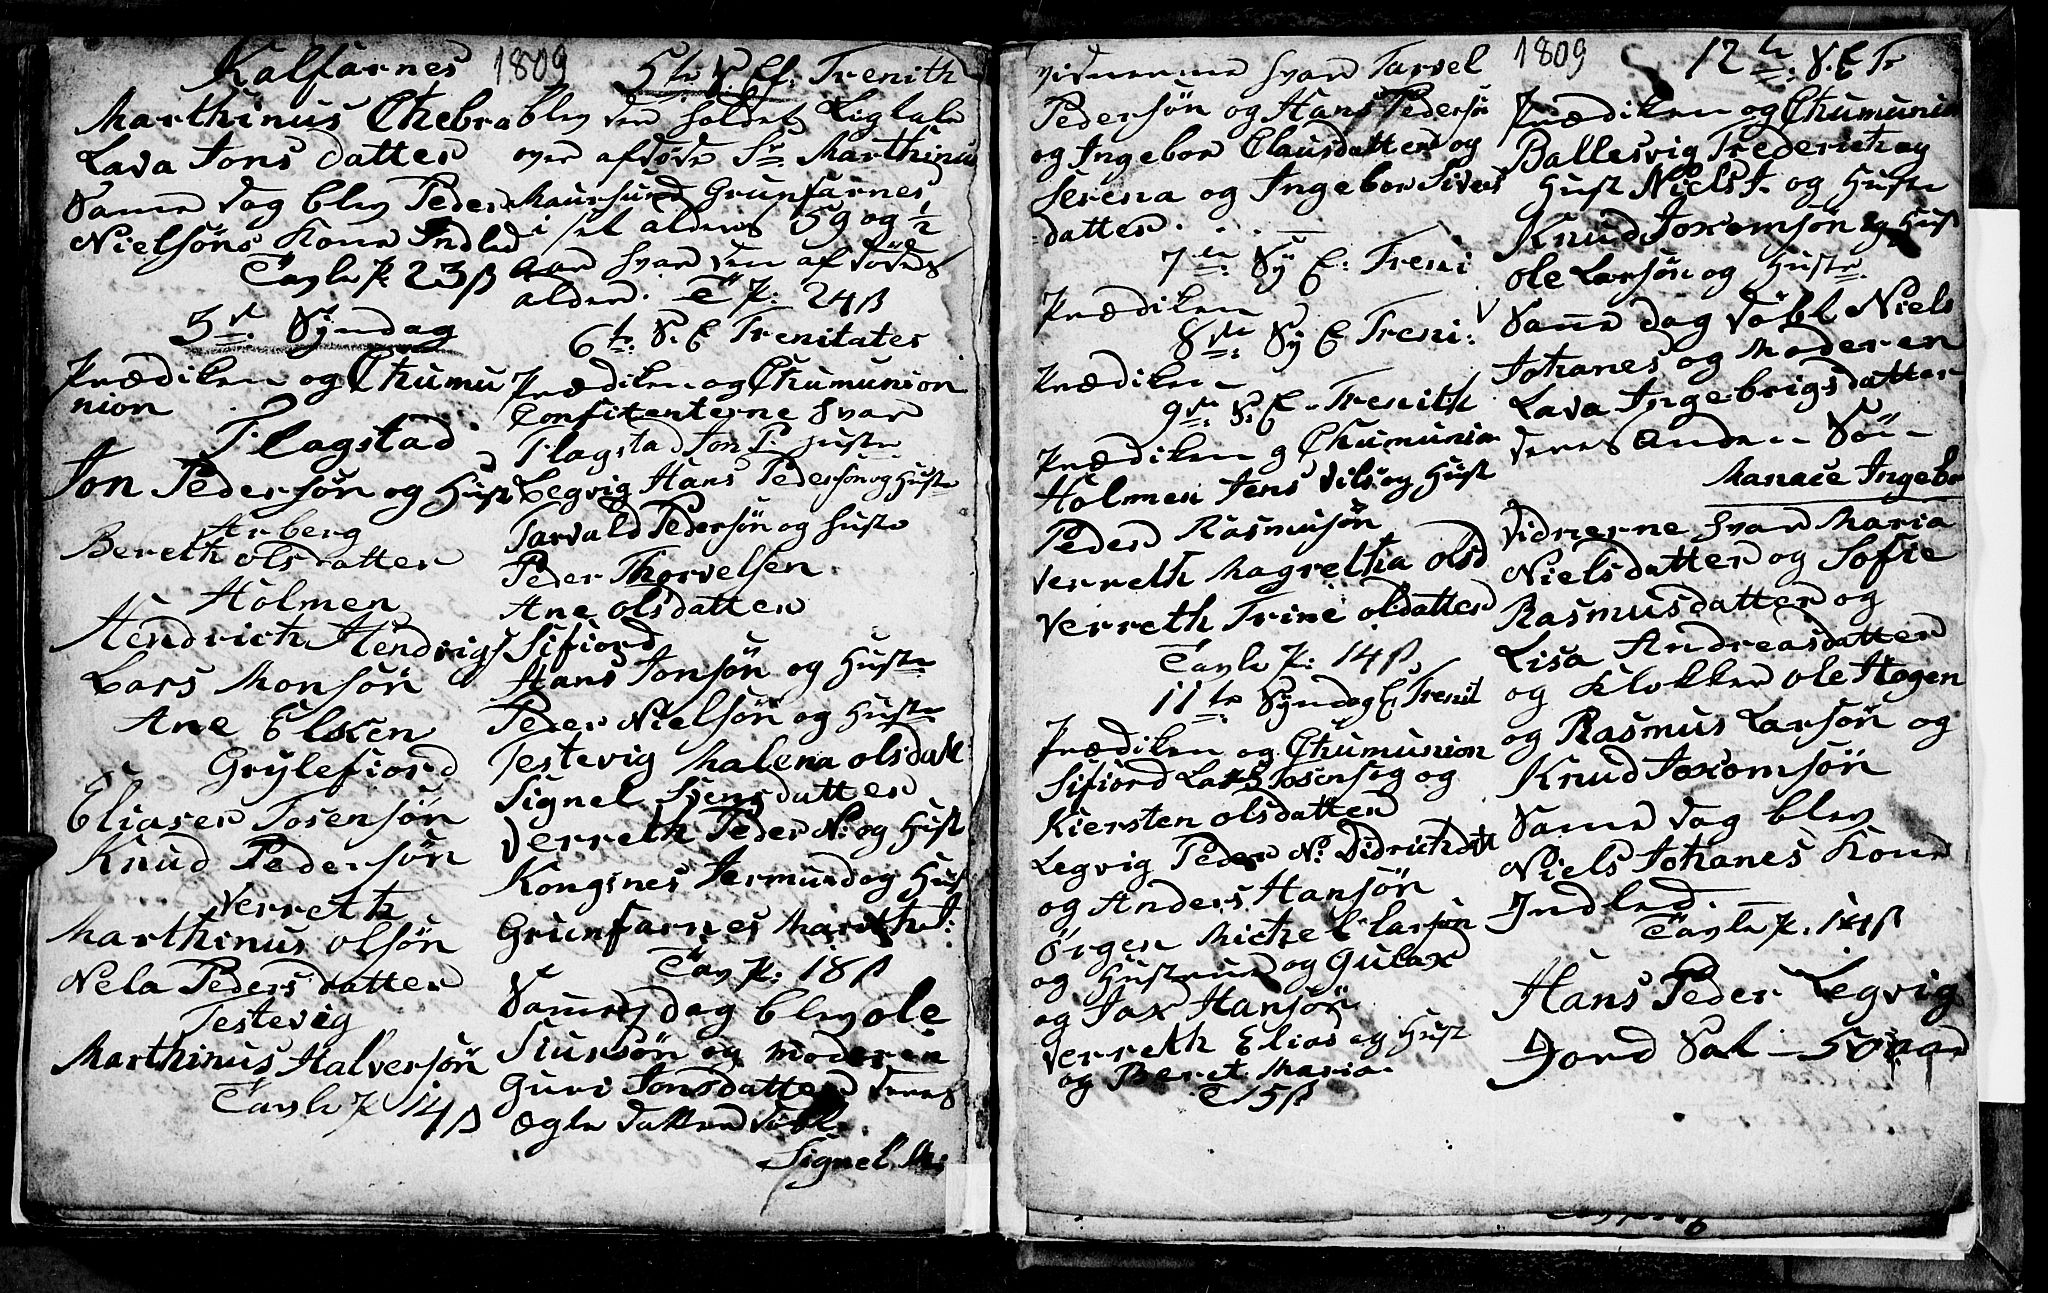 Kalfarnes
Marthinus Chebra
Lava Jons datter
Same dag blev Peder
Nielsöns Kone Indled
Tavle p 23 ß
3de Syndag
Prædiken og Chumu
nion
Flagstad
Jon Pedersön og Hust
Arberg
Bereth olsdatter
Holmen
Hendrich Hendrigs
Lars Monsön
Ane Elsken
Grylefiord
Eliaser Tosensön
Knud Pedersön
Verreth
Marthinus olsön
Nela Peders datter
Testevig
Marthinus Halversön
Tavle p 14 ß
1809
5te S. Ef. Trenith
blev der holdet Ligtale
over afdöde Sr Marthinus
Maursund Grunfarnes
i sit alders 59 og ½
Aar svar den af dödes
alder. T p: 24 ß
6te S. E Trenitates
Prædiken og Chumunion
Confitenterne svar
Flagstad Jon P. Hustr
Legvig Hans Pedersön og Hustr
Tarvald Pedersön og Hustr
Peder Thorvelsen
Ane olsdatter
Sifiord
Hans Jonsön og Hustr
Peder Nielsön og Hustr
Testevig Malena olsdatt
Signel Svensdatter
Verreth Peder N: og Hust
Kongsnes Jermund og Hus
Grunfarnes Mareth J:
Tav p: 18 ß
Samme dag blev ole
Siursön og moderen
Guri Jonsdatter deres
Ægte datter döbt
Signel M:
vidnerne svar Tarvel
Pedersön og Hans Pedersön
og Ingebor Clausdatter og
Serena og Ingebor Sivers
datter.
7de Sy E: Treni
Prædiken
8de Sy E Treni:
Prædiken
9de S. E. Trenith
Prædiken og Chumunion
Holmen Jens Vils og Hust
Peder Rasmusön
Verreth Magretha olsd
Verreth Trine olsdatter
Tavle p: 14 ß
11te Syndag E. Trenit
Prædiken og Chumunion
Sifiord Lars Tosensig og
Kiersten olsdatter
Legvig Peder N. Didrichdatt
og Anders Hansön
Örgen Michel Larsön
og Hustrue og Gulax
og Jax Hansön
Verreth Elias og Hust
og Beret Maria
T 15 ß
1809
12te S. E Tr
Prædiken og Chumunion
Ballesvig Frederich og
Hust Niels J. og Hustr
Knud Joxomsön og Hust
ole Larsön og Hustr
Same dag döbt Niels
Johanes og Moderen
Lava Ingebrigsdatter
deres Anden Sön
Manase Ingebr
vidnerne svar Maria
Nielsdatter og Sofie
Rasmusdatter og
Lisa Andreasdatter
og Klokker ole Hagen
og Rasmus Larsön og
Knud Joxomsön
Same dag blev
Niels Johanes Kone
Indled.
Tavle p. 14 ß
Hans Peder Legvig
Jord Sal